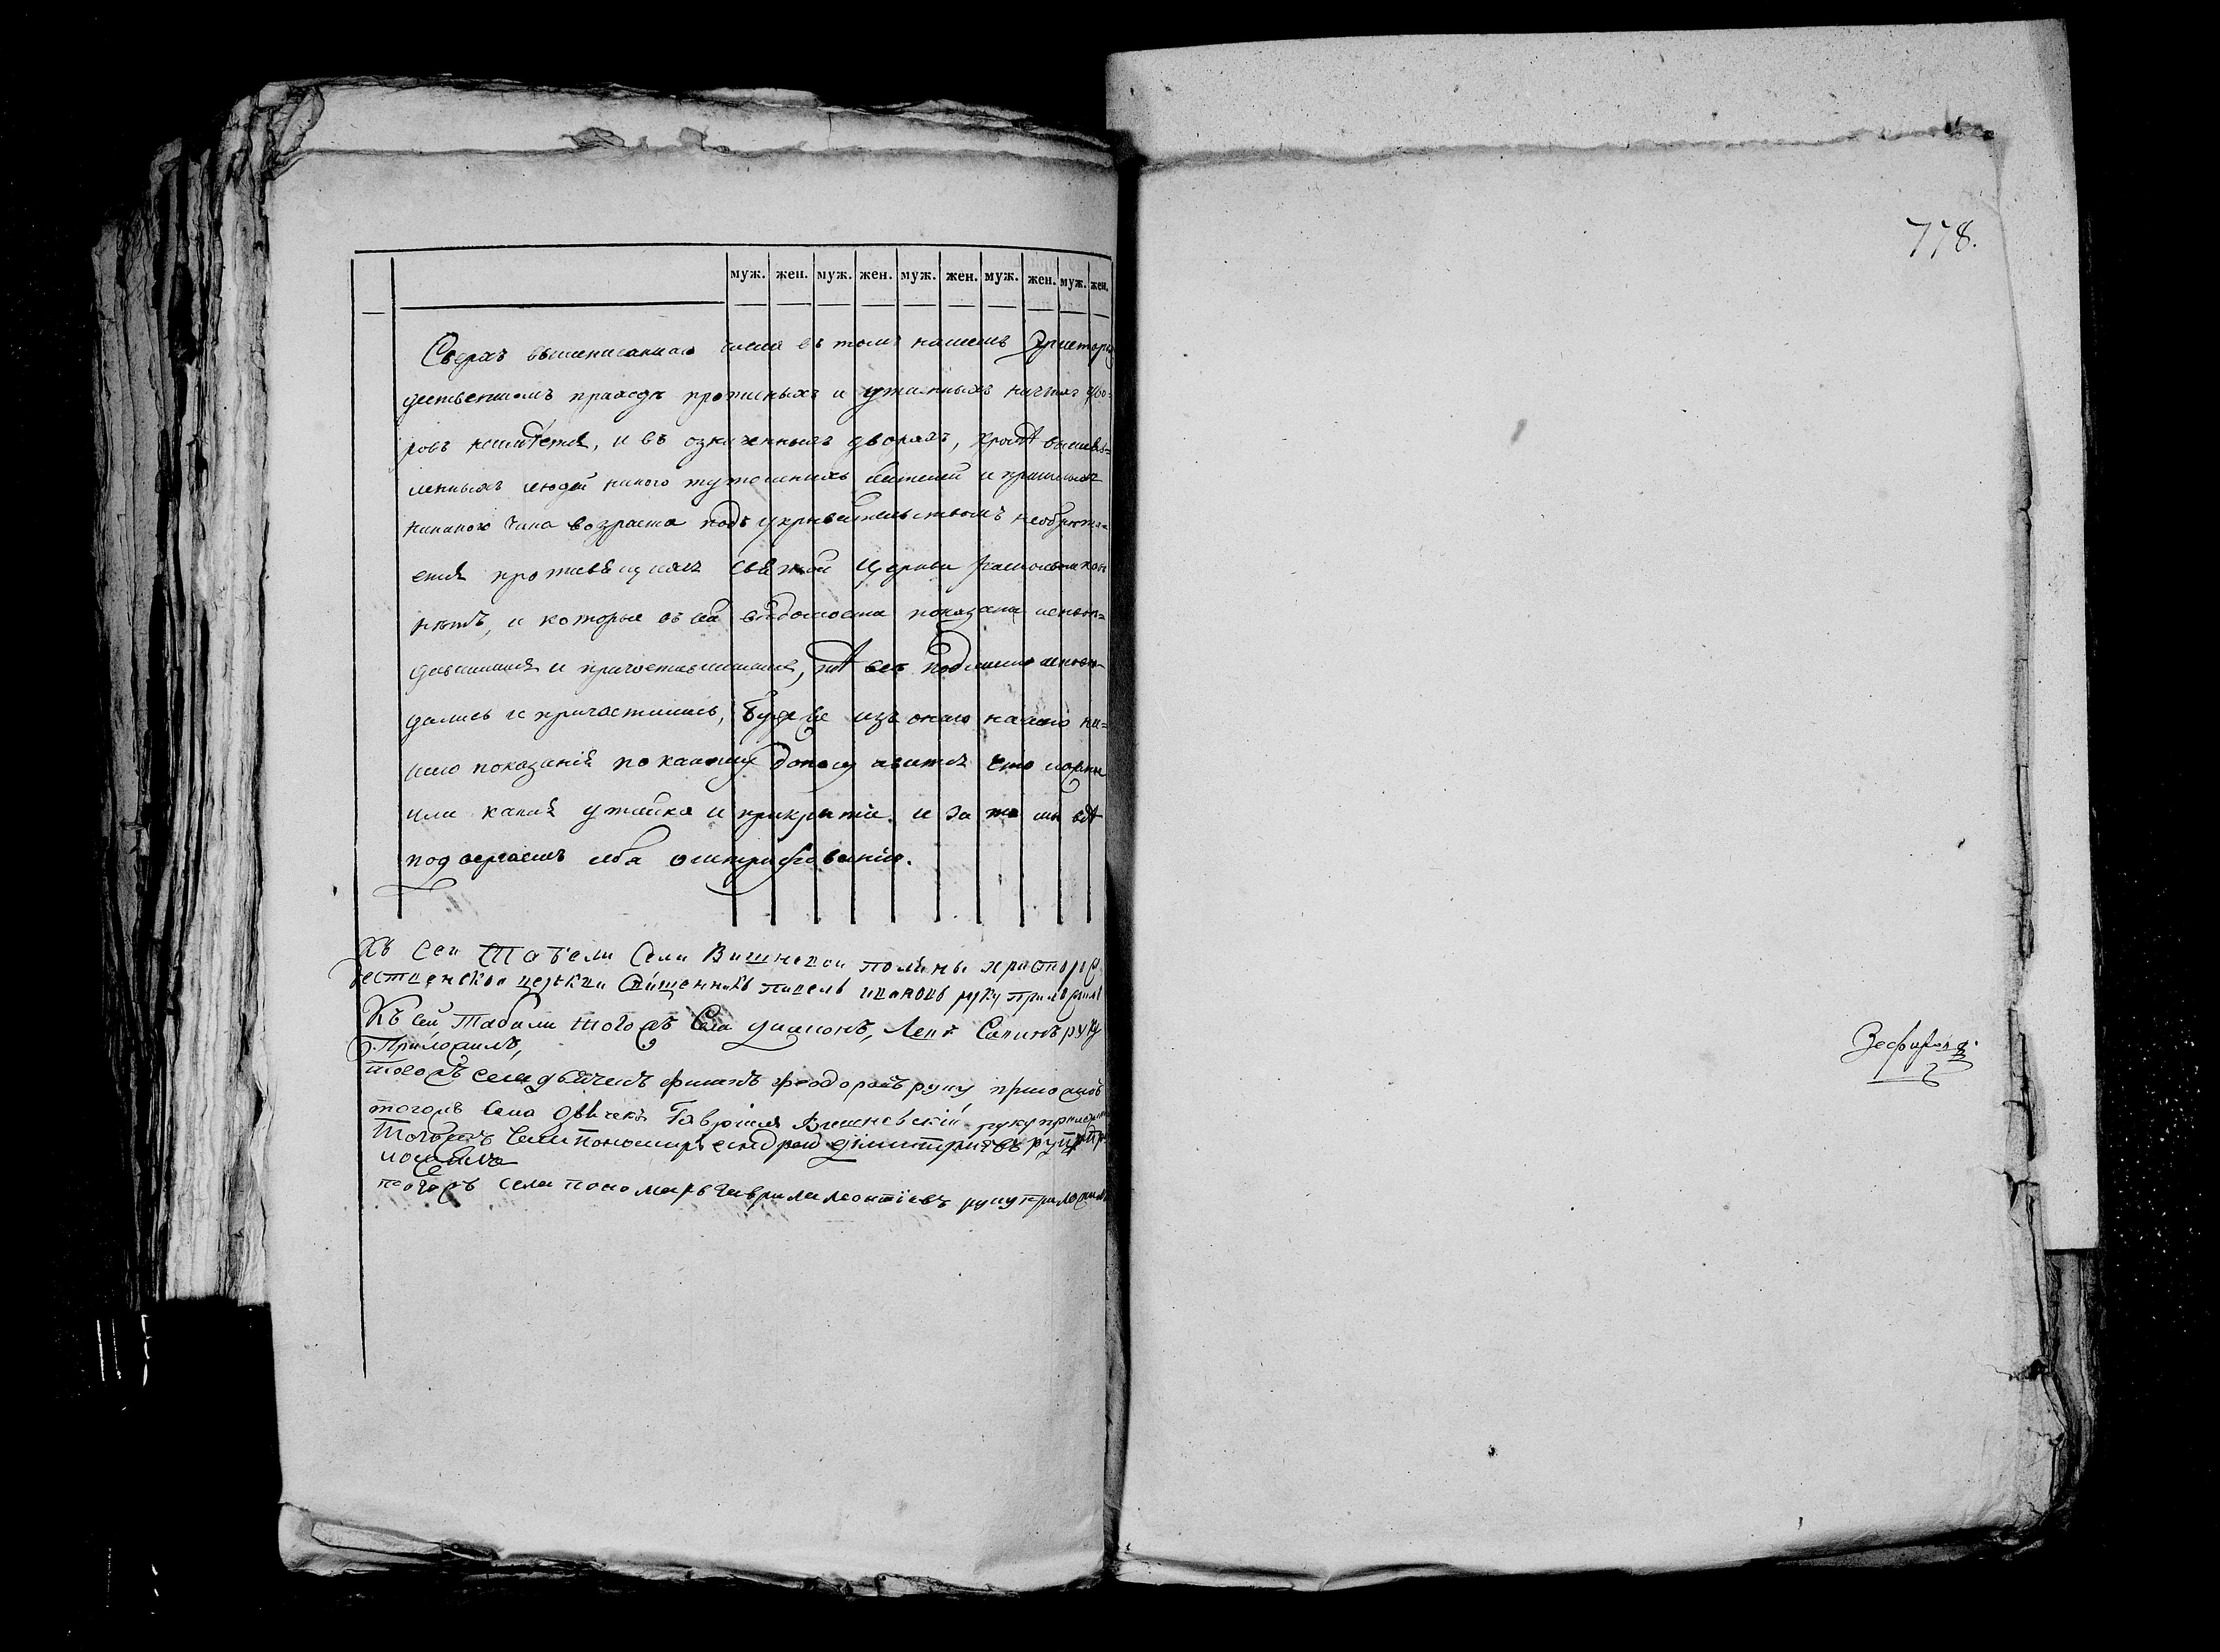 778.
муж. жен. муж. жен. муж. жен. муж. жен. муж. жен.
Сверхъ вышеписаннаго числа въ томъ нашемъ Христорож
дественскомъ приходѣ прописныхъ и утаенныхъ ничьихъ дво=
ровъ неимѣется, и въ означенныхъ дворахъ, кромѣ
людей никого тутошнихъ жителей и пришлыхъ
никакого чина возраста подъ укрывательствомъ необрета=
ется противящихся святой Церкви раскольниковъ
нѣтъ, и которые въ сей вѣдомости показаны испове=
давшимися и причаставшимися, тѣ все подлинно испове=
дались и причастились, буде же изъ онаго нашего на=
шего показанія покажутъ что ложно
или какая утайка и прикрытіе. и за то мы всѣ
подвергаемъ себя оштрафованію.
Къ сей Табели Села Вишневой поляны христорож
дественской церкви Священникъ ивановъ руку приложилъ
Къ сей Табели того жъ Села диаконъ, Сапинъ руку
Приложилъ,
того жъ села дьячекъ феодоровъ руку приложилъ
тогожъ Села дьячекъ Гаврiилъ Вишневскiй руку приложилъ
Тогожъ Села пономарь андрей димитриевъ руку при
ложилъ
тогожъ села пономарь гаврила леонтiевъ руку приложилъ